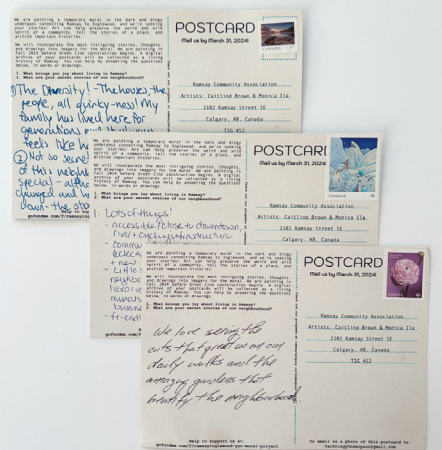 We are painting a temporary mural in the dark and dingy
underpass connecting Ramsay to Inglewood, and we're seeking
your stories! Art can help preserve the weird and wild
spirit of a community, tell the stories of a place, and
archive important histories.
We will incorporate the most intriguing stories, thoughts,
and drawings into imagery for the mural. We are painting in
Fall 2024 before Green Line construction begins. A digital
archive of your postcards will be collected as a living
history of Ramsay. You can help by answering the questions
below, in words or drawings.
1. What brings you joy about living in Ramsay?
2. What are your secret stories of our neighbourhood?
① The Diversity! - The houses, the
people, all quirky-ness! My
family has lived here for
generations
feels like h
② Not so secre
of this neighb
special -
changed and
down - the sto
Help
gofundme.com/f/ramsayin
POSTCARD
Mail us by March 31, 2024!
CANADA
Ramsay Community Association
Artists: Caitlind Brown & Monica Ila
2102 Ramsay Street SE
Calgary, AB, Canada
T2G 4S2
We are painting a temporary mural in the dark and dingy
underpass connecting Ramsay to Inglewood, and we're seeking
your stories! Art can help preserve the weird and wild
spirit of a community, tell the stories of a place, and
archive important histories.
We will incorporate the most intriguing stories, thoughts,
and drawings into imagery for the mural. We are painting in
Fall 2024 before Green Line construction begins. A digital
archive of your postcards will be collected as a living
history of Ramsay. You can help by answering the questions
below, in words or drawings.
1. What brings you joy about living in Ramsay?
2. What are your secret stories of our neighbourhood?
1. Lots of things!
- accessible/close to downtown,
river + cycling infrastructure
- commu
eclecti
+ new
- Little
neighbo
librarie
murals
busine
- friend
gofundm
POSTCAR
Mail us by March 31, 2024!
Ramsay Community Association
Artists: Caitlind Brown & Monica Ila
2102 Ramsay Street SE
Calgary, AB, Canada
We are painting a temporary mural in the dark and dingy
underpass connecting Ramsay to Inglewood, and we're seeking
your stories! Art can help preserve the weird and wild
spirit of a community, tell the stories of a place, and
archive important histories.
We will incorporate the most intriguing stories, thoughts,
and drawings into imagery for the mural. We are painting in
Fall 2024 before Green Line construction begins. A digital
archive of your postcards will be collected as a living
history of Ramsay. You can help by answering the questions
below, in words or drawings.
1. What brings you joy about living in Ramsay?
2. What are your secret stories of our neighbourhood?
We love seeing the
cats that greet us on our
daily walks and the
amazing gardens that
beautify the neighborhood
Help to support us at:
gofundme.com/f/ramsayinglewood-yyc-mural-project
POSTCARD
Mail us by March 31, 2024!
CANADA
Ramsay Community Association
Artists: Caitlind Brown & Monica Ila
2102 Ramsay Street SE
Calgary, AB, Canada
T2G 4S2
Or email us a photo of this postcard to: